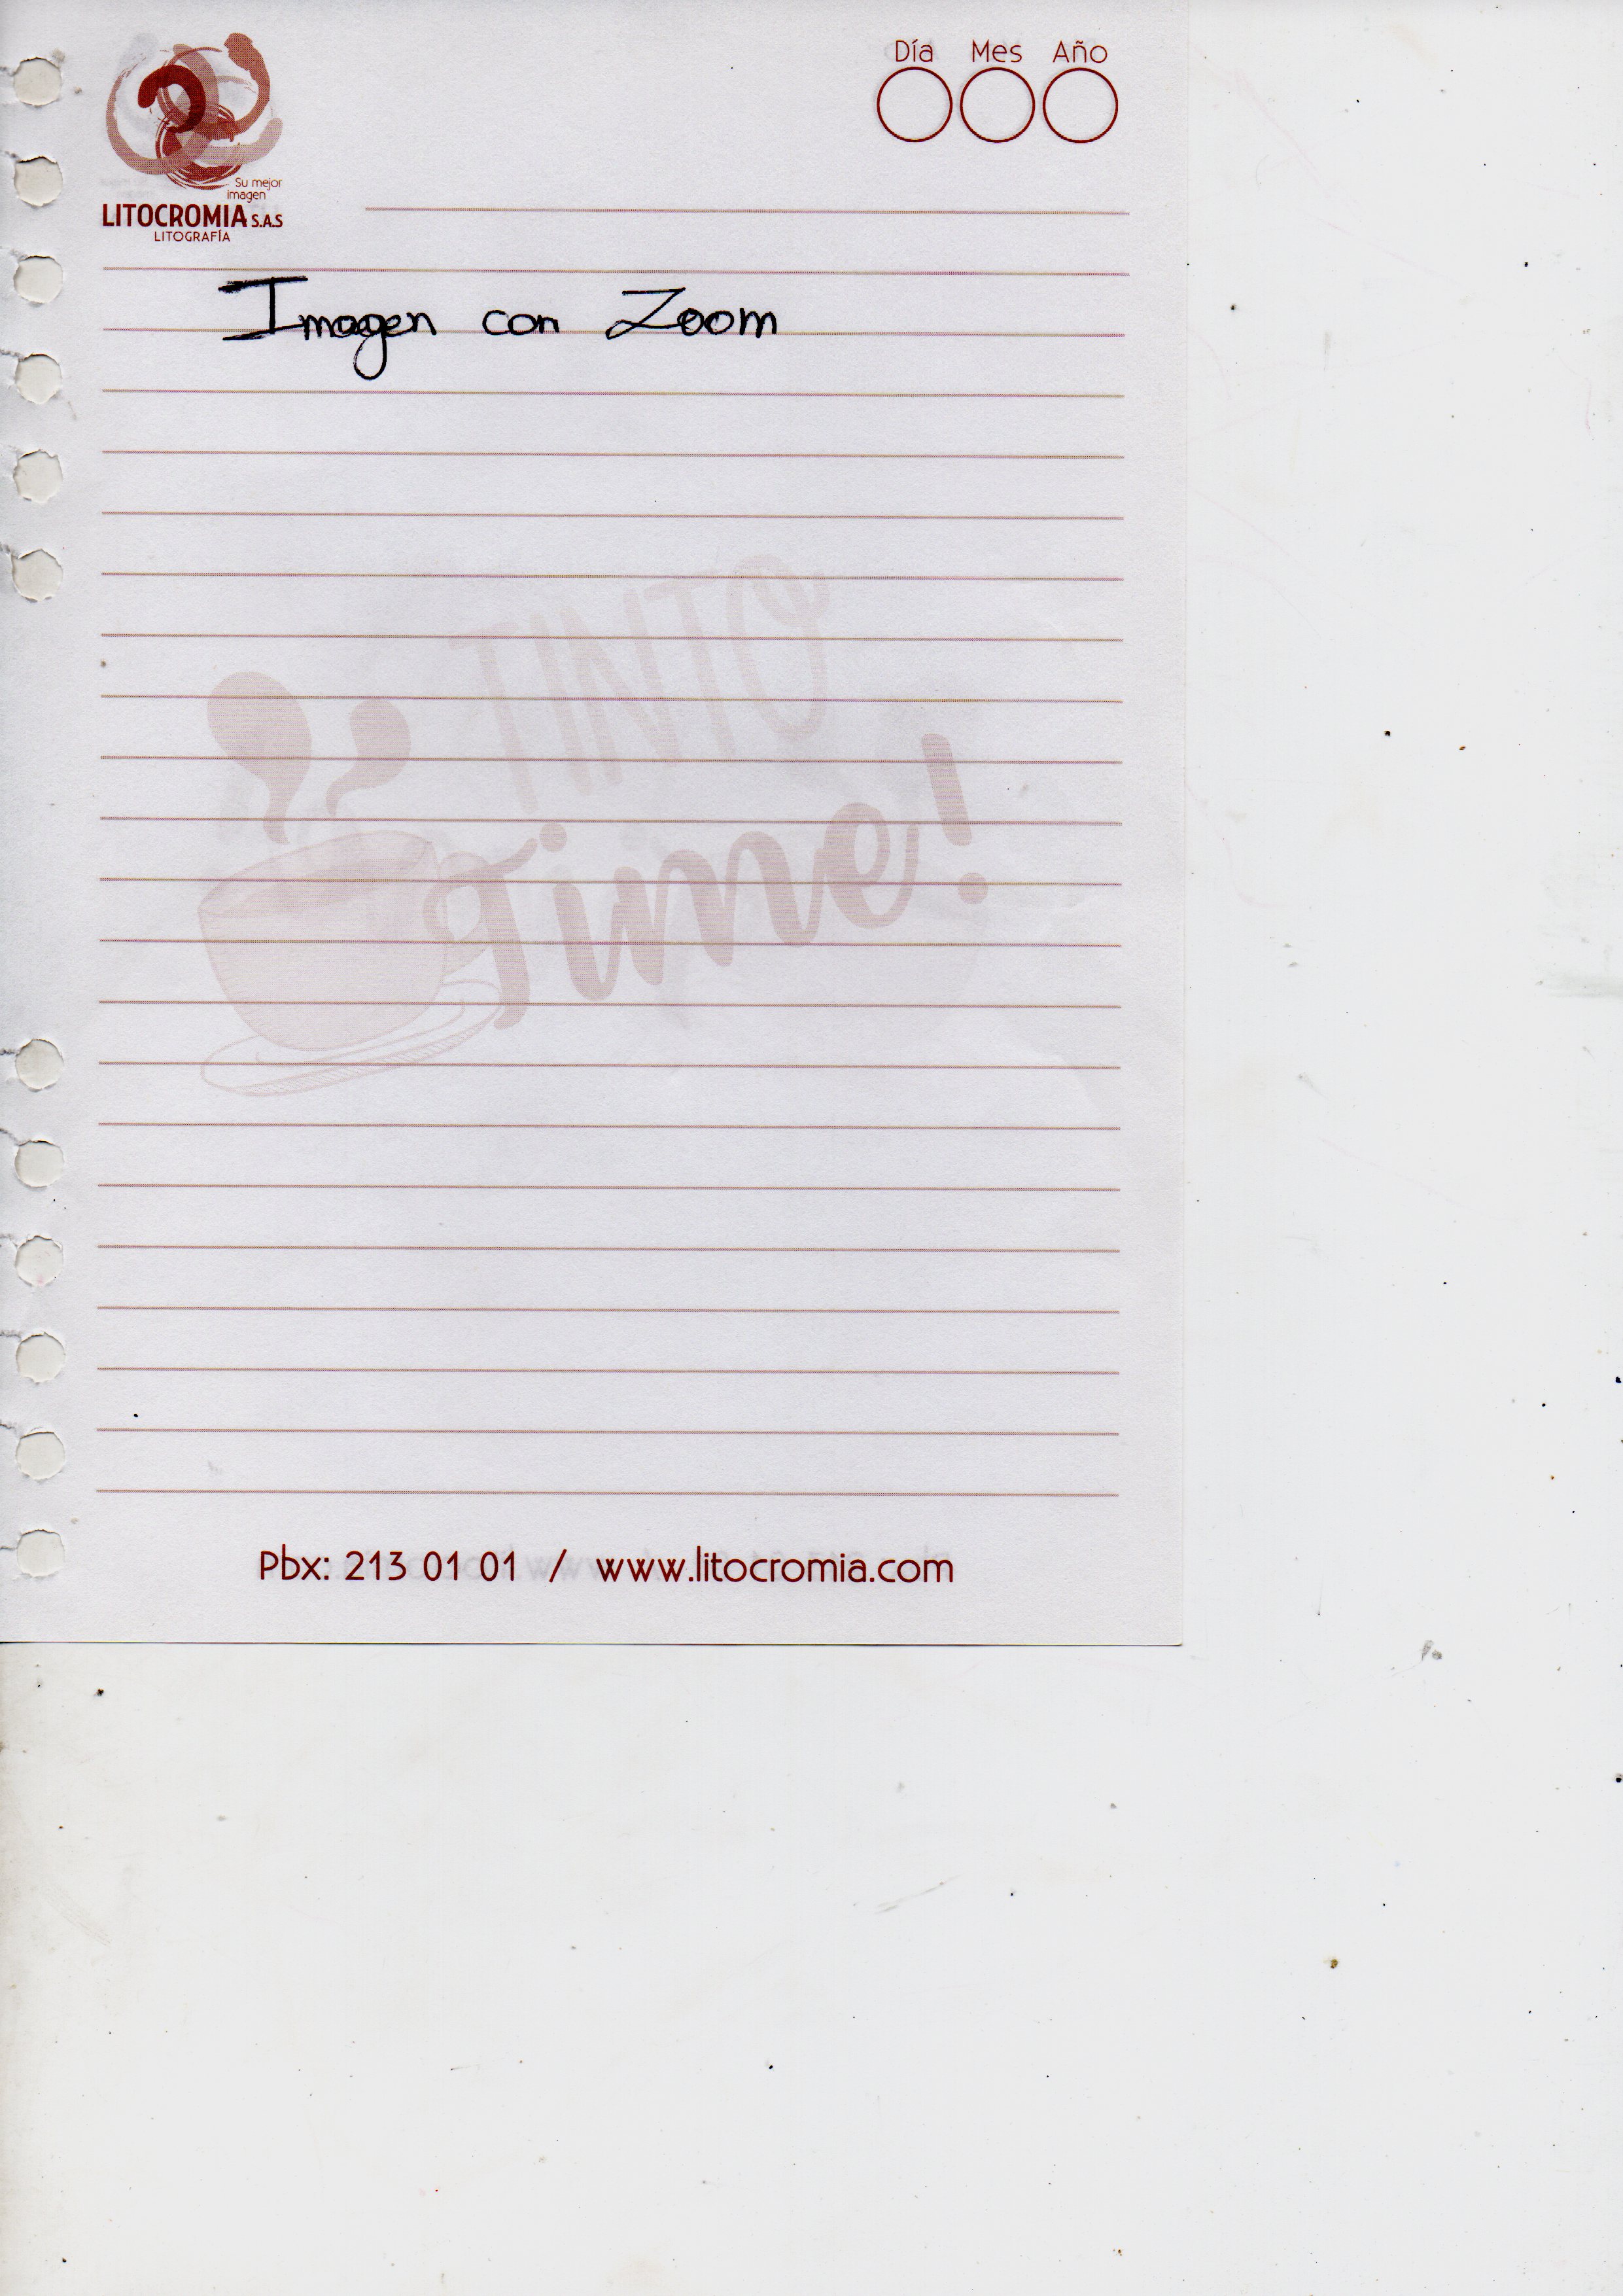 Día Mes Año
Su mejor
imagen
LITOCROMIA S.A.S
LITOGRAFÍA
Imagen con Zoom
TINTO
Time!
Pbx: 213 01 01 / www.litocromia.com